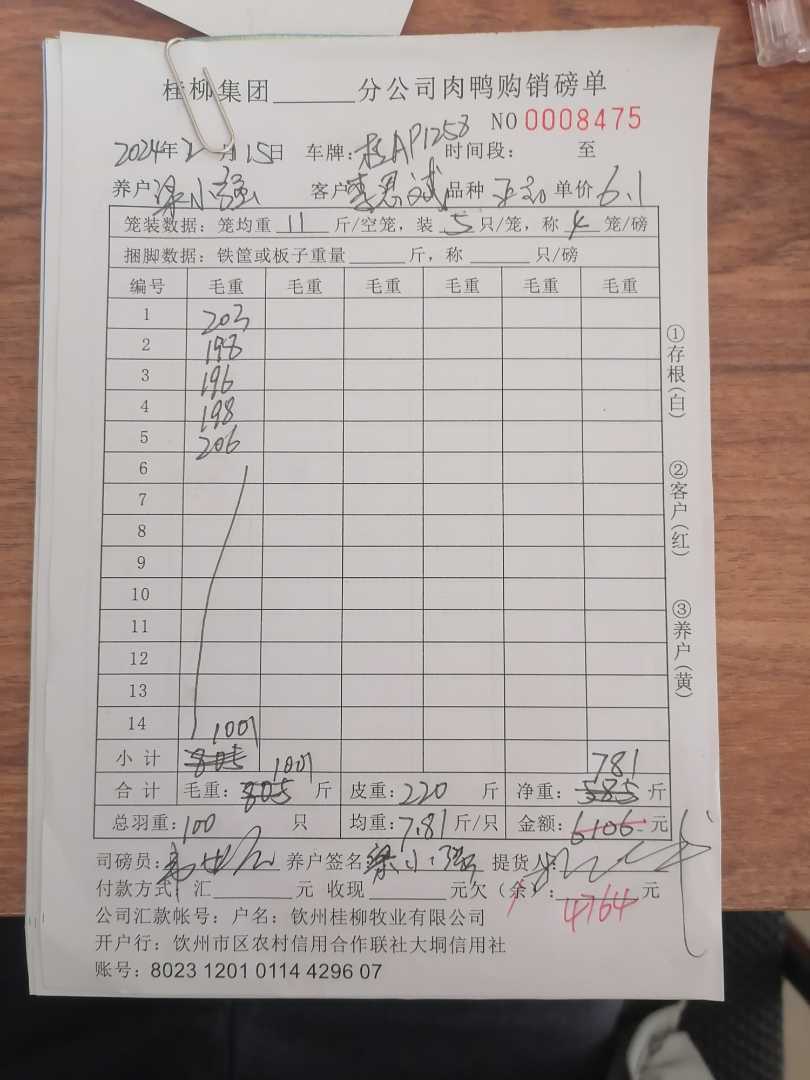 桂柳集团______分公司肉鸭购销磅单
NO 0008475
2024年2月15日 车牌:桂AP1258 时间段: 至
养户梁小强 客户李思斌 品种 单价6.1
笼装数据：笼均重 11 斤/空笼，装 5 只/笼，称 4 笼/磅
捆脚数据：铁筐或板子重量______斤，称______只/磅
编号 毛重 毛重 毛重 毛重 毛重 毛重
1 203
2 198
3 196
4 198
5 206
6
7
8
9
10
11
12
13
14
1001
小计 805 1001 781
合计 毛重:805 斤 皮重:220 斤 净重:585 斤
总羽重:100 只 均重:7.81 斤/只 金额:6106 元
司磅员: 养户签名 梁小强 提货人:
付款方式 汇______元 收现______元欠（余）:______元
4764
公司汇款帐号：户名：钦州桂柳牧业有限公司
开户行：钦州市区农村信用合作联社大垌信用社
账号：8023 1201 0114 4296 07
①存根(白)
②客户(红)
③养户(黄)